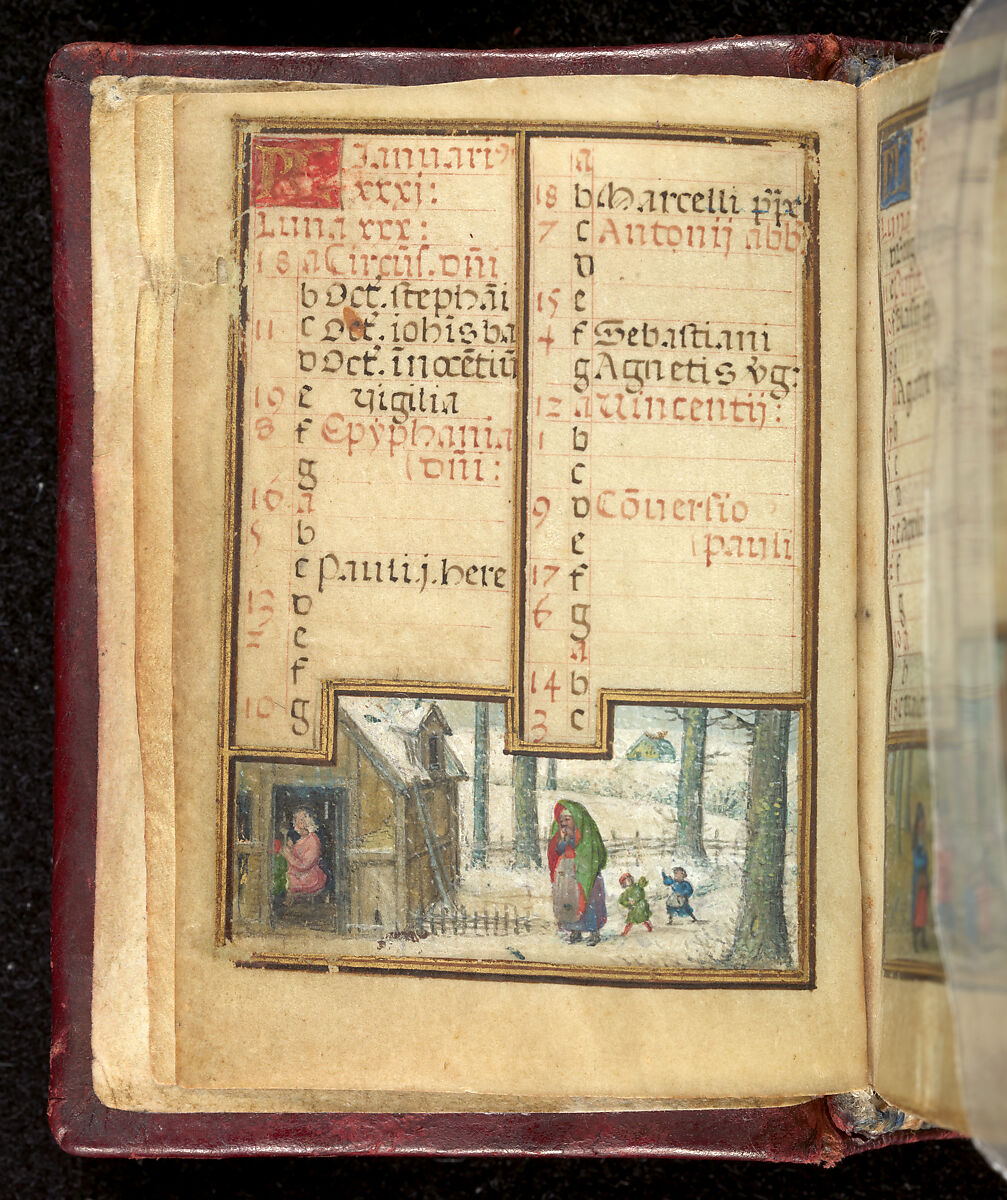 KL Januari⁹
xxxj:
Luna xxx:
18 a Circũs. dñi
b Oct. stephãi
11 c Oct. iohis ba
d Oct. inocẽtiũ
19 e vigilia
8 f Epyphania
g (dñi:
16 a
5 b
c Pauli. j. here
13 d
2 e
f
10 g
a
18 b Marcelli pp̃
7 c Antonij abb
d
15 e
4 f Sebastiani
g Agnetis vg:
12 a Vincentij:
1 b
c
9 d Cõuersio
e (pauli
17 f
6 g
a
14 b
3 c